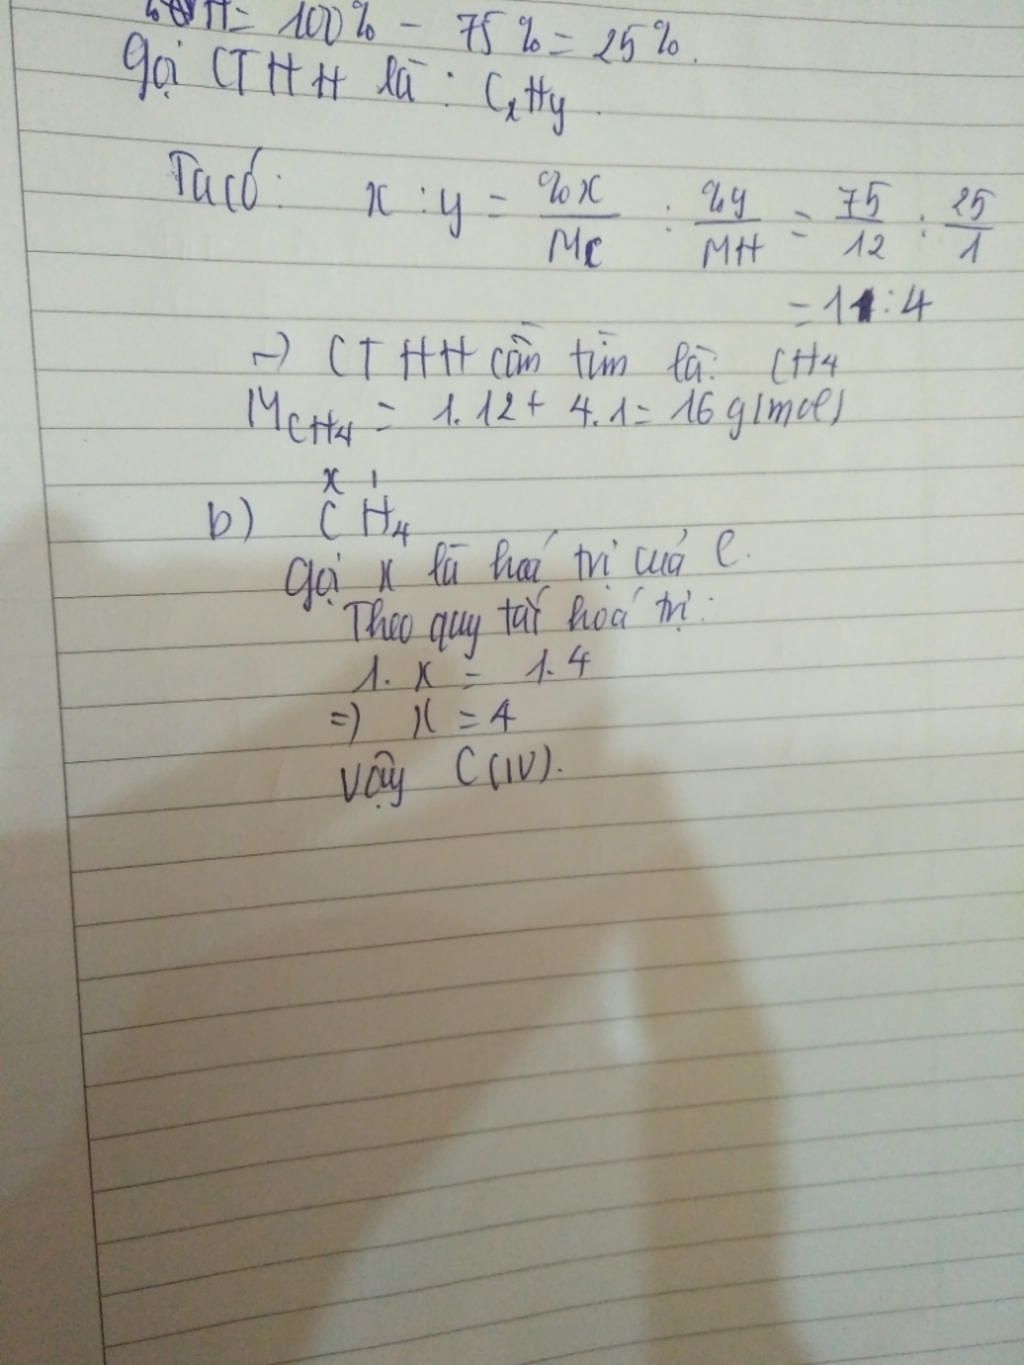 %H = 100% - 75% = 25%.
Gọi CTHH là : CxHy.
Ta có : x : y = %x/MC : %y/MH = 75/12 : 25/1
= 1 : 4
→ CTHH cần tìm là: CH4
MCH4 = 1.12 + 4.1 = 16 g/mol)
x I
b) CH4
Gọi x là hoá trị của C.
Theo quy tắc hoá trị :
1. x = 1.4
=> x = 4
Vậy C (IV).